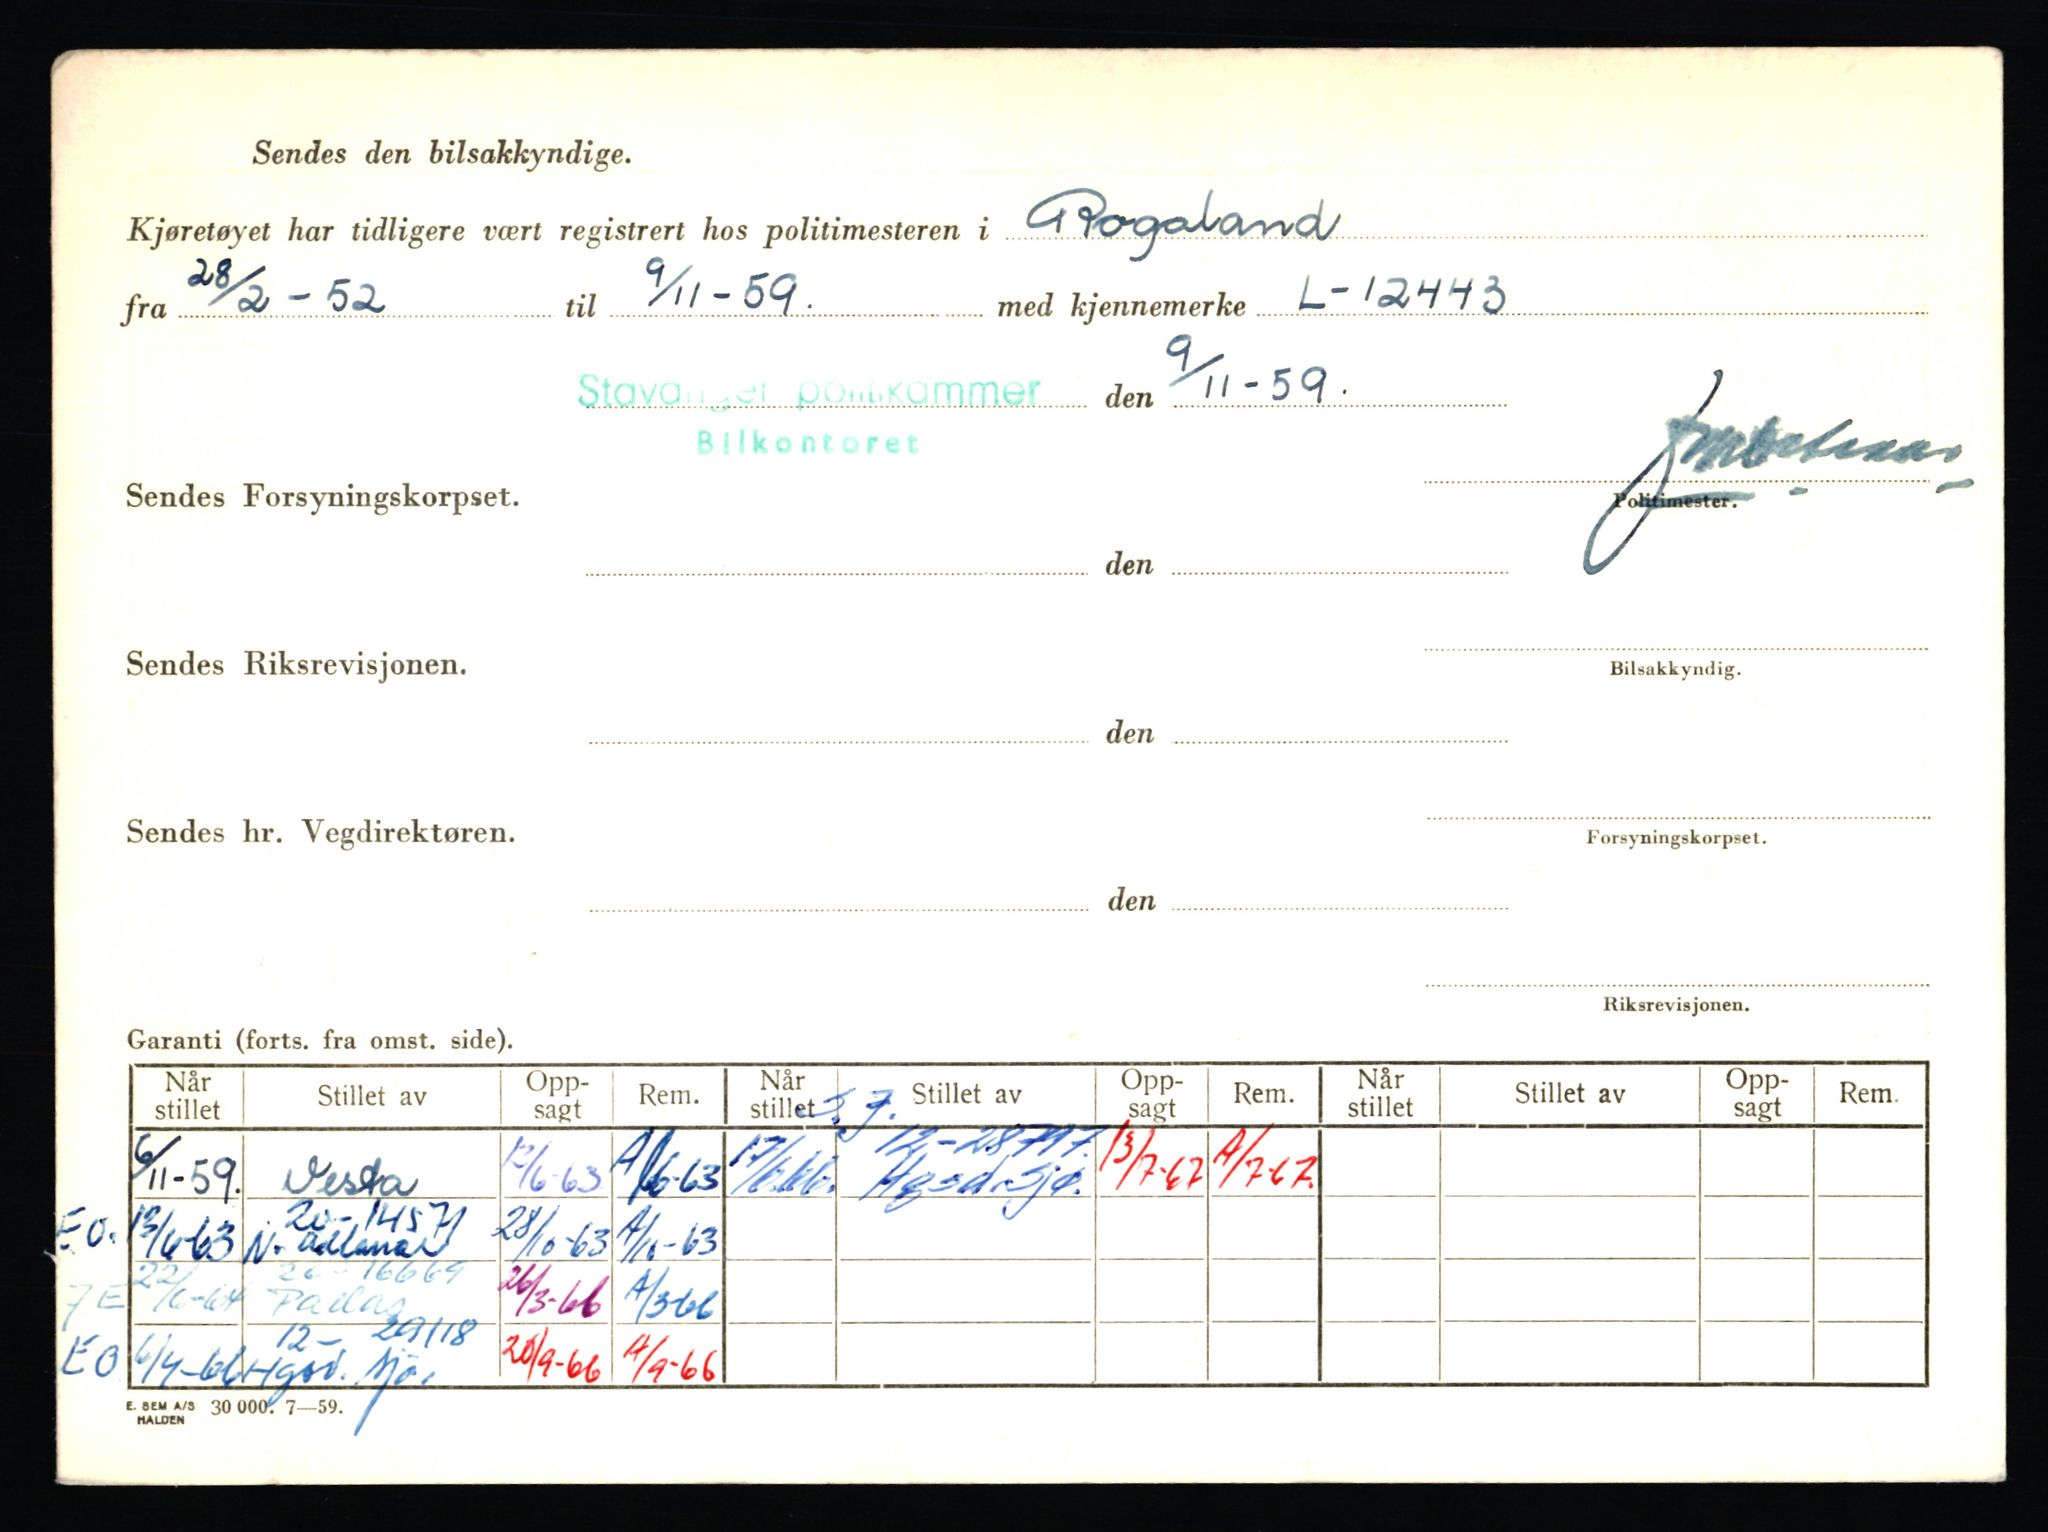 Sendes den bilsakkyndige.
Kjøretøyet har tidligere vært registrert hos politimesteren i Rogaland
fra 28/2-52 til 9/11-59. med kjennemerke L-12443
Stavanger politikammer den 9/11-59.
Bilkontoret
Sendes Forsyningskorpset.
Politimester.
den
Sendes Riksrevisjonen.
Bilsakkyndig.
den
Sendes hr. Vegdirektøren.
Forsyningskorpset.
den
Riksrevisjonen.
Garanti (forts. fra omst. side).
Når stillet Stillet av Opp-sagt Rem. Når stillet Stillet av Opp-sagt Rem. Når stillet Stillet av Opp-sagt Rem.
6/11-59. Vesta 12/6-63 A/6-63 17/6.66. Hgsd. Sjø. 13/7-67 A/7-67.
20-14571
EO. 12/6-63 N. 28/10-63 A/10-63
20-16669
22/6-64 26/3-66 A/3-66
12- 29118
EO 6/4-66 Hgsd. Sjø. 20/9-66 A/9-66
E. SEM A/S HALDEN 30 000. 7—59.